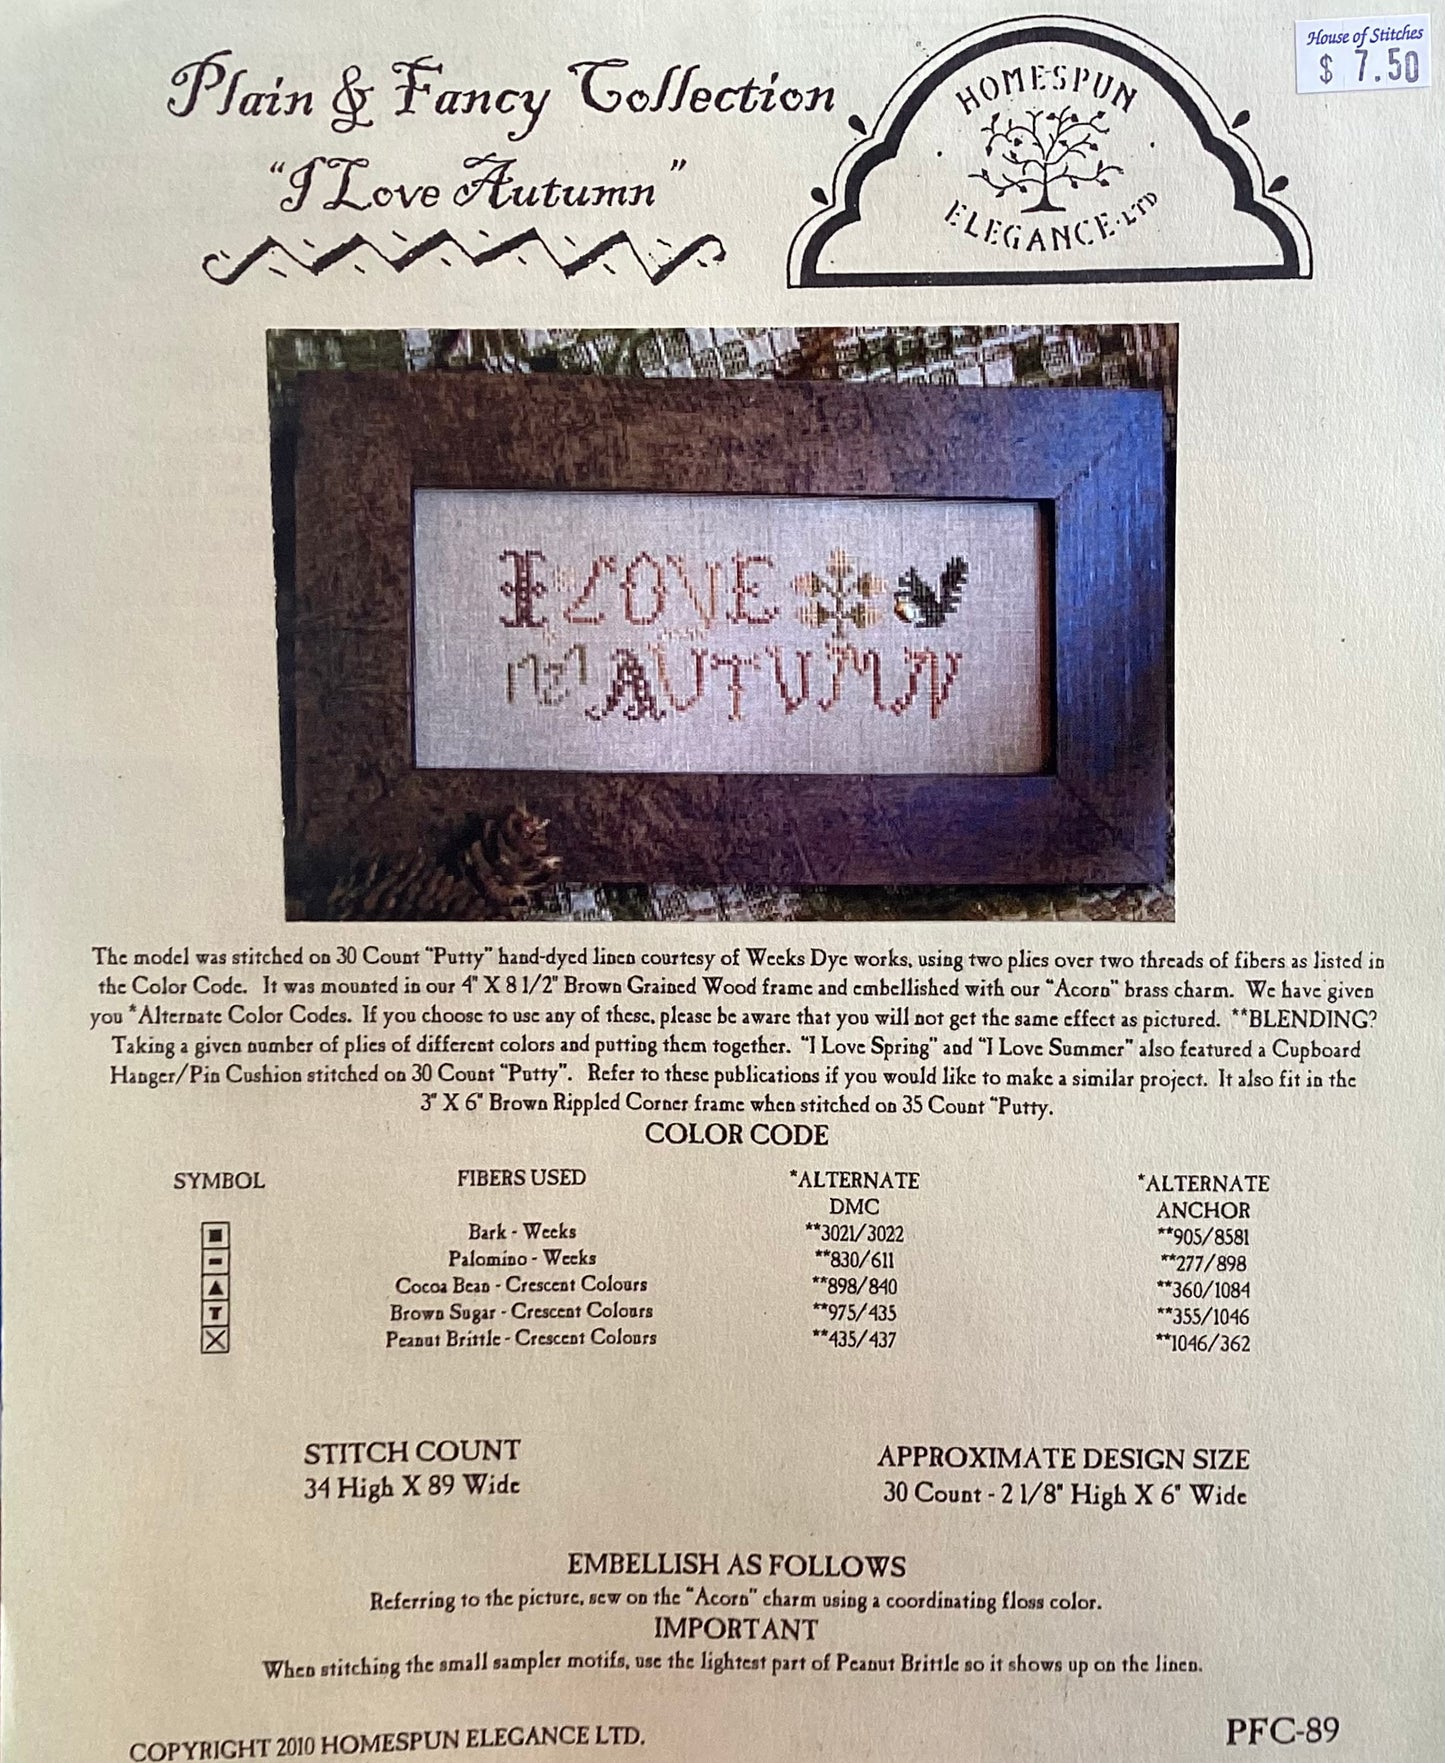 House of Stitches
$ 7.50
Plain & Fancy Collection
"I Love Autumn"
HOMESPUN
ELEGANCE·LTD
I LOVE
AUTUMN
The model was stitched on 30 Count "Putty" hand-dyed linen courtesy of Weeks Dye works, using two plies over two threads of fibers as listed in
the Color Code. It was mounted in our 4" X 8 1/2" Brown Grained Wood frame and embellished with our "Acorn" brass charm. We have given
you *Alternate Color Codes. If you choose to use any of these, please be aware that you will not get the same effect as pictured. **BLENDING?
Taking a given number of plies of different colors and putting them together. "I Love Spring" and "I Love Summer" also featured a Cupboard
Hanger/Pin Cushion stitched on 30 Count "Putty". Refer to these publications if you would like to make a similar project. It also fit in the
3" X 6" Brown Rippled Corner frame when stitched on 35 Count "Putty.
COLOR CODE
SYMBOL FIBERS USED *ALTERNATE *ALTERNATE
DMC ANCHOR
Bark - Weeks **3021/3022 **905/8581
Palomino - Weeks **830/611 **277/898
Cocoa Bean - Crescent Colours **898/840 **360/1084
T Brown Sugar - Crescent Colours **975/435 **355/1046
Peanut Brittle - Crescent Colours **435/437 **1046/362
STITCH COUNT APPROXIMATE DESIGN SIZE
34 High X 89 Wide 30 Count - 2 1/8" High X 6" Wide
EMBELLISH AS FOLLOWS
Referring to the picture, sew on the "Acorn" charm using a coordinating floss color.
IMPORTANT
When stitching the small sampler motifs, use the lightest part of Peanut Brittle so it shows up on the linen.
COPYRIGHT 2010 HOMESPUN ELEGANCE LTD. PFC-89